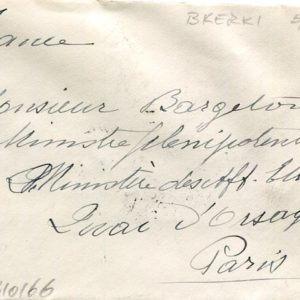 BKERKI
rance
onsieur Bargeton
Ministre plénipoten
Ministère des Aff. Et
Quai d'Orsay
Paris
10166